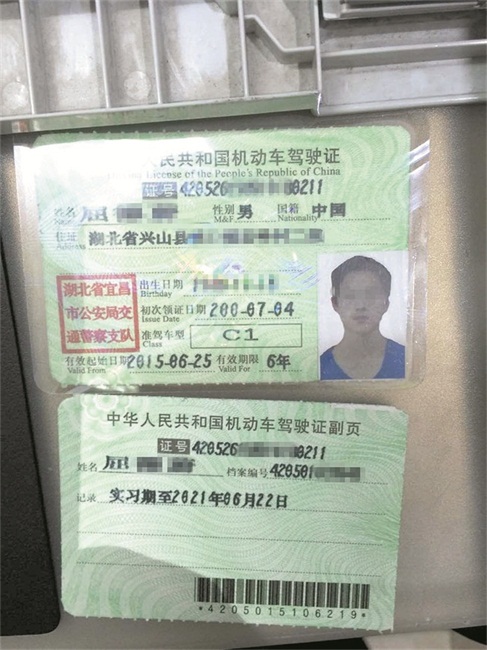 人民共和国机动车驾驶证
License of the People's Republic of China
证号 420526 0211
姓名 屈 性别 男 国籍 中国
Name M&F Nationality
住址 湖北省兴山县
Address
湖北省宜昌
市公安局交
通警察支队
出生日期
Birthday
初次领证日期 200-07-04
Issue Date
准驾车型 C1
Class
有效起始日期 2015-06-25 有效期限 6年
Valid From Valid For
中华人民共和国机动车驾驶证副页
证号 420526 0211
姓名 屈 档案编号 420501
记录 实习期至2021年06月22日
*4205015106219*